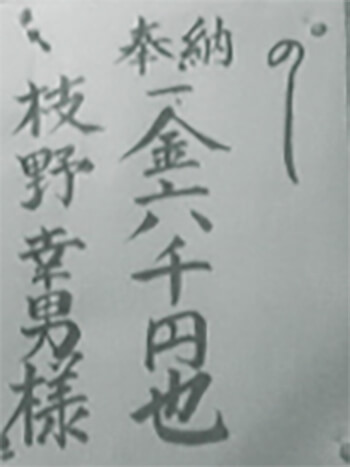 のし
奉納
一金六千円也
枝野幸男様